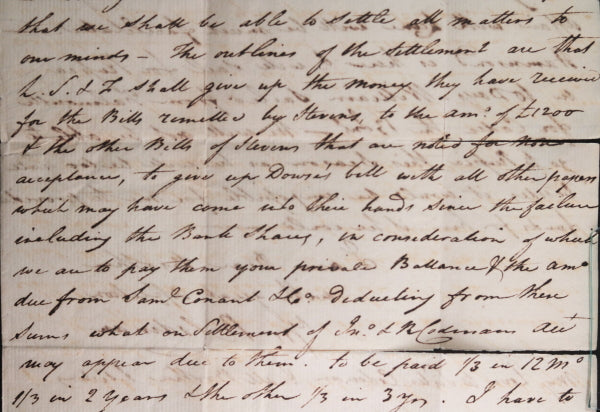 that we shall be able to settle all matters to
our minds – The outlines of the Settlement are that
L. S. & F shall give up the money they have received
for the Bills remitted by Stevens, to the amo. of £1200
& the other Bills of Stevens that are noted for non
acceptance, to give up Dowse's bill with all other papers
which may have come into their hands since the failure
including the Bank Shares, in consideration of which
we are to pay them your private Ballance & the amo
due from Saml. Conant & Co. deducting from these
Sums what on Settlement of Jno. & R Codmans acct
may appear due to them. to be paid 1/3 in 12 Mo
1/3 in 2 Years & the other 1/3 in 3 Yrs. I have to